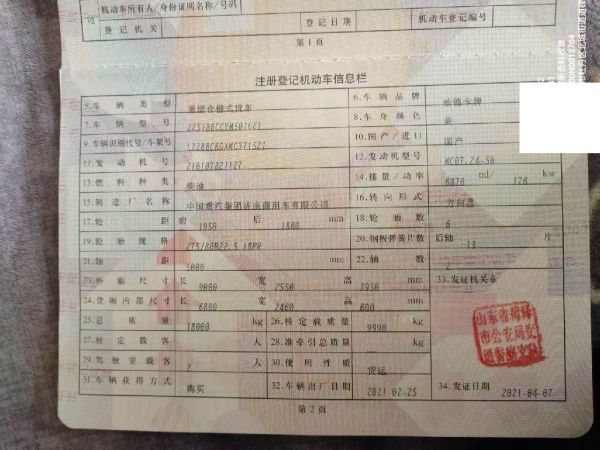 机动车所有人/身份证明名称/号码
VII
登记机关
登记日期
机动车登记编号
第1页
注册登记机动车信息栏
5.车辆类型 重型仓栅式货车 6.车辆品牌 汕德卡牌
7.车辆型号 8.车身颜色 蓝
9.车辆识别代号/车架号 10.国产/进口 国产
11.发动机号 210107021127 12.发动机型号 MC07.24-50
13.燃料种类 柴油 14.排量/功率 6870 ml/ 176 kw
15.制造厂名称 中国重汽集团济南商用车有限公司 16.转向形式 方向盘
17.轮距 前 1950 后 1860 mm 18.轮胎数 6
19.轮胎规格 275/80R22.5 18PR 20.钢板弹簧片数 后轴 13 片
21.轴距 5000 mm 22.轴数 2
23.外廓尺寸 长 9000 宽 2550 高 3950 mm 33.发证机关章
24.货厢内部尺寸 长 6800 宽 2460 高 600 mm
25.总质量 18000 kg 26.核定载质量 9990 kg
27.核定载客 人 28.准牵引总质量 kg
29.驾驶室载客 2 人 30.使用性质 货运
31.车辆获得方式 购买 32.车辆出厂日期 2021-02-25 34.发证日期 2021-04-07
第2页